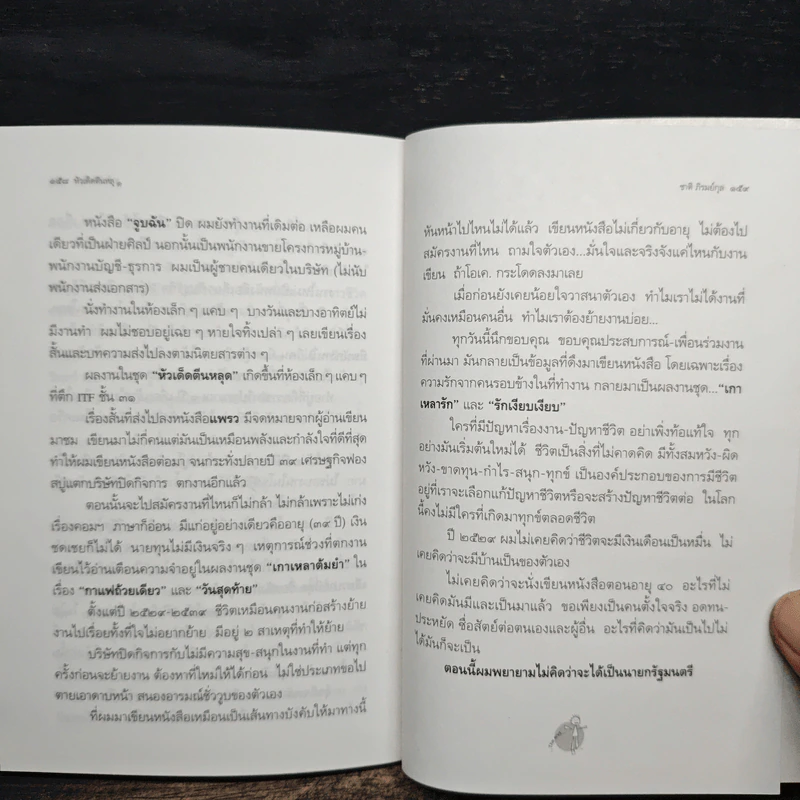 ๑๕๘ หัวเด็ดตีนหลุด
หนังสือ “จูบฉัน” ปิด ผมยังทำงานที่เดิมต่อ เหลือผมคน
เดียวที่เป็นฝ่ายศิลป์ นอกนั้นเป็นพนักงานขายโครงการหมู่บ้าน-
พนักงานบัญชี-ธุรการ ผมเป็นผู้ชายคนเดียวในบริษัท (ไม่นับ
พนักงานส่งเอกสาร)
นั่งทำงานในห้องเล็ก ๆ แคบ ๆ บางวันและบางอาทิตย์ไม่
มีงานทำ ผมไม่ชอบอยู่เฉย ๆ หายใจทิ้งเปล่า ๆ เลยเขียนเรื่อง
สั้นและบทความส่งไปลงตามนิตยสารต่าง ๆ
ผลงานในชุด “หัวเด็ดตีนหลุด” เกิดขึ้นที่ห้องเล็ก ๆ แคบ ๆ
ที่ตึก ITF ชั้น ๓๑
เรื่องสั้นที่ส่งไปลงหนังสือแพรว มีจดหมายจากผู้อ่านเขียน
มาชม เขียนมาไม่กี่คนแต่มันเป็นเหมือนพลังและกำลังใจที่ดีที่สุด
ทำให้ผมเขียนหนังสือต่อมา จนกระทั่งปลายปี ๓๙ เศรษฐกิจฟอง
สบู่แตกบริษัทปิดกิจการ ตกงานอีกแล้ว
ตอนนั้นจะไปสมัครงานที่ไหนก็ไม่กล้า ไม่กล้าเพราะไม่เก่ง
เรื่องคอมฯ ภาษาก็อ่อน มีแก่อยู่อย่างเดียวคืออายุ (๓๙ ปี) เงิน
ชดเชยก็ไม่ได้ นายทุนไม่มีเงินจริง ๆ เหตุการณ์ช่วงที่ตกงาน
เขียนไว้อ่านเตือนความจำอยู่ในผลงานชุด “เกาเหลาต้มยำ” ใน
เรื่อง “กาแฟถ้วยเดียว” และ “วันสุดท้าย”
ตั้งแต่ปี ๒๕๒๙-๒๕๓๙ ชีวิตเหมือนคนงานก่อสร้างย้าย
งานไปเรื่อยทั้งที่ใจไม่อยากย้าย มีอยู่ ๒ สาเหตุที่ทำให้ย้าย
บริษัทปิดกิจการกับไม่มีความสุข-สนุกในงานที่ทำ แต่ทุก
ครั้งก่อนจะย้ายงาน ต้องหาที่ใหม่ให้ได้ก่อน ไม่ใช่ประเภทขอไป
ตายเอาดาบหน้า สนองอารมณ์ชั่ววูบของตัวเอง
ที่ผมมาเขียนหนังสือเหมือนเป็นเส้นทางบังคับให้มาทางนี้
ชาติ ภิรมย์กุล ๑๕๙
หันหน้าไปไหนไม่ได้แล้ว เขียนหนังสือไม่เกี่ยวกับอายุ ไม่ต้องไป
สมัครงานที่ไหน ถามใจตัวเอง...มั่นใจและจริงจังแค่ไหนกับงาน
เขียน ถ้าโอเค. กระโดดลงมาเลย
เมื่อก่อนยังเคยน้อยใจวาสนาตัวเอง ทำไมเราไม่ได้งานที่
มั่นคงเหมือนคนอื่น ทำไมเราต้องย้ายงานบ่อย...
ทุกวันนี้นึกขอบคุณ ขอบคุณประสบการณ์-เพื่อนร่วมงาน
ที่ผ่านมา มันกลายเป็นข้อมูลที่ดึงมาเขียนหนังสือ โดยเฉพาะเรื่อง
ความรักจากคนรอบข้างในที่ทำงาน กลายมาเป็นผลงานชุด...“เกา
เหลารัก” และ “รักเงียบเงียบ”
ใครที่มีปัญหาเรื่องงาน-ปัญหาชีวิต อย่าเพิ่งท้อแท้ใจ ทุก
อย่างมันเริ่มต้นใหม่ได้ ชีวิตเป็นสิ่งที่ไม่คาดคิด มีทั้งสมหวัง-ผิด
หวัง-ขาดทุน-กำไร-สนุก-ทุกข์ เป็นองค์ประกอบของการมีชีวิต
อยู่ที่เราจะเลือกแก้ปัญหาชีวิตหรือจะสร้างปัญหาชีวิตต่อ ในโลก
นี้คงไม่มีใครที่เกิดมาทุกข์ตลอดชีวิต
ปี ๒๕๒๙ ผมไม่เคยคิดว่าชีวิตจะมีเงินเดือนเป็นหมื่น ไม่
เคยคิดว่าจะมีบ้านเป็นของตัวเอง
ไม่เคยคิดว่าจะนั่งเขียนหนังสือตอนอายุ ๔๐ อะไรที่ไม่
เคยคิดมันมีและเป็นมาแล้ว ขอเพียงเป็นคนตั้งใจจริง อดทน-
ประหยัด ซื่อสัตย์ต่อตนเองและผู้อื่น อะไรที่คิดว่ามันเป็นไปไม่
ได้มันก็จะเป็น
ตอนนี้ผมพยายามไม่คิดว่าจะได้เป็นนายกรัฐมนตรี